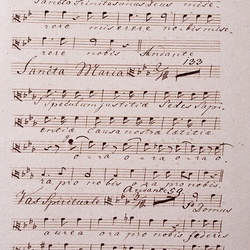 Sancta Trinitas unus Deus mise-
rere miserere nobis mise-
rere nobis Andante
Sancta Maria 133
Speculum justitiæ Sedes sapi-
entiæ causa nostra lætitiæ
o ra o ra o ra o
ra pro nobis ora pro nobis.
Vas Spirituale Andante 69
Domus
aurea ora pro nobis fœderis